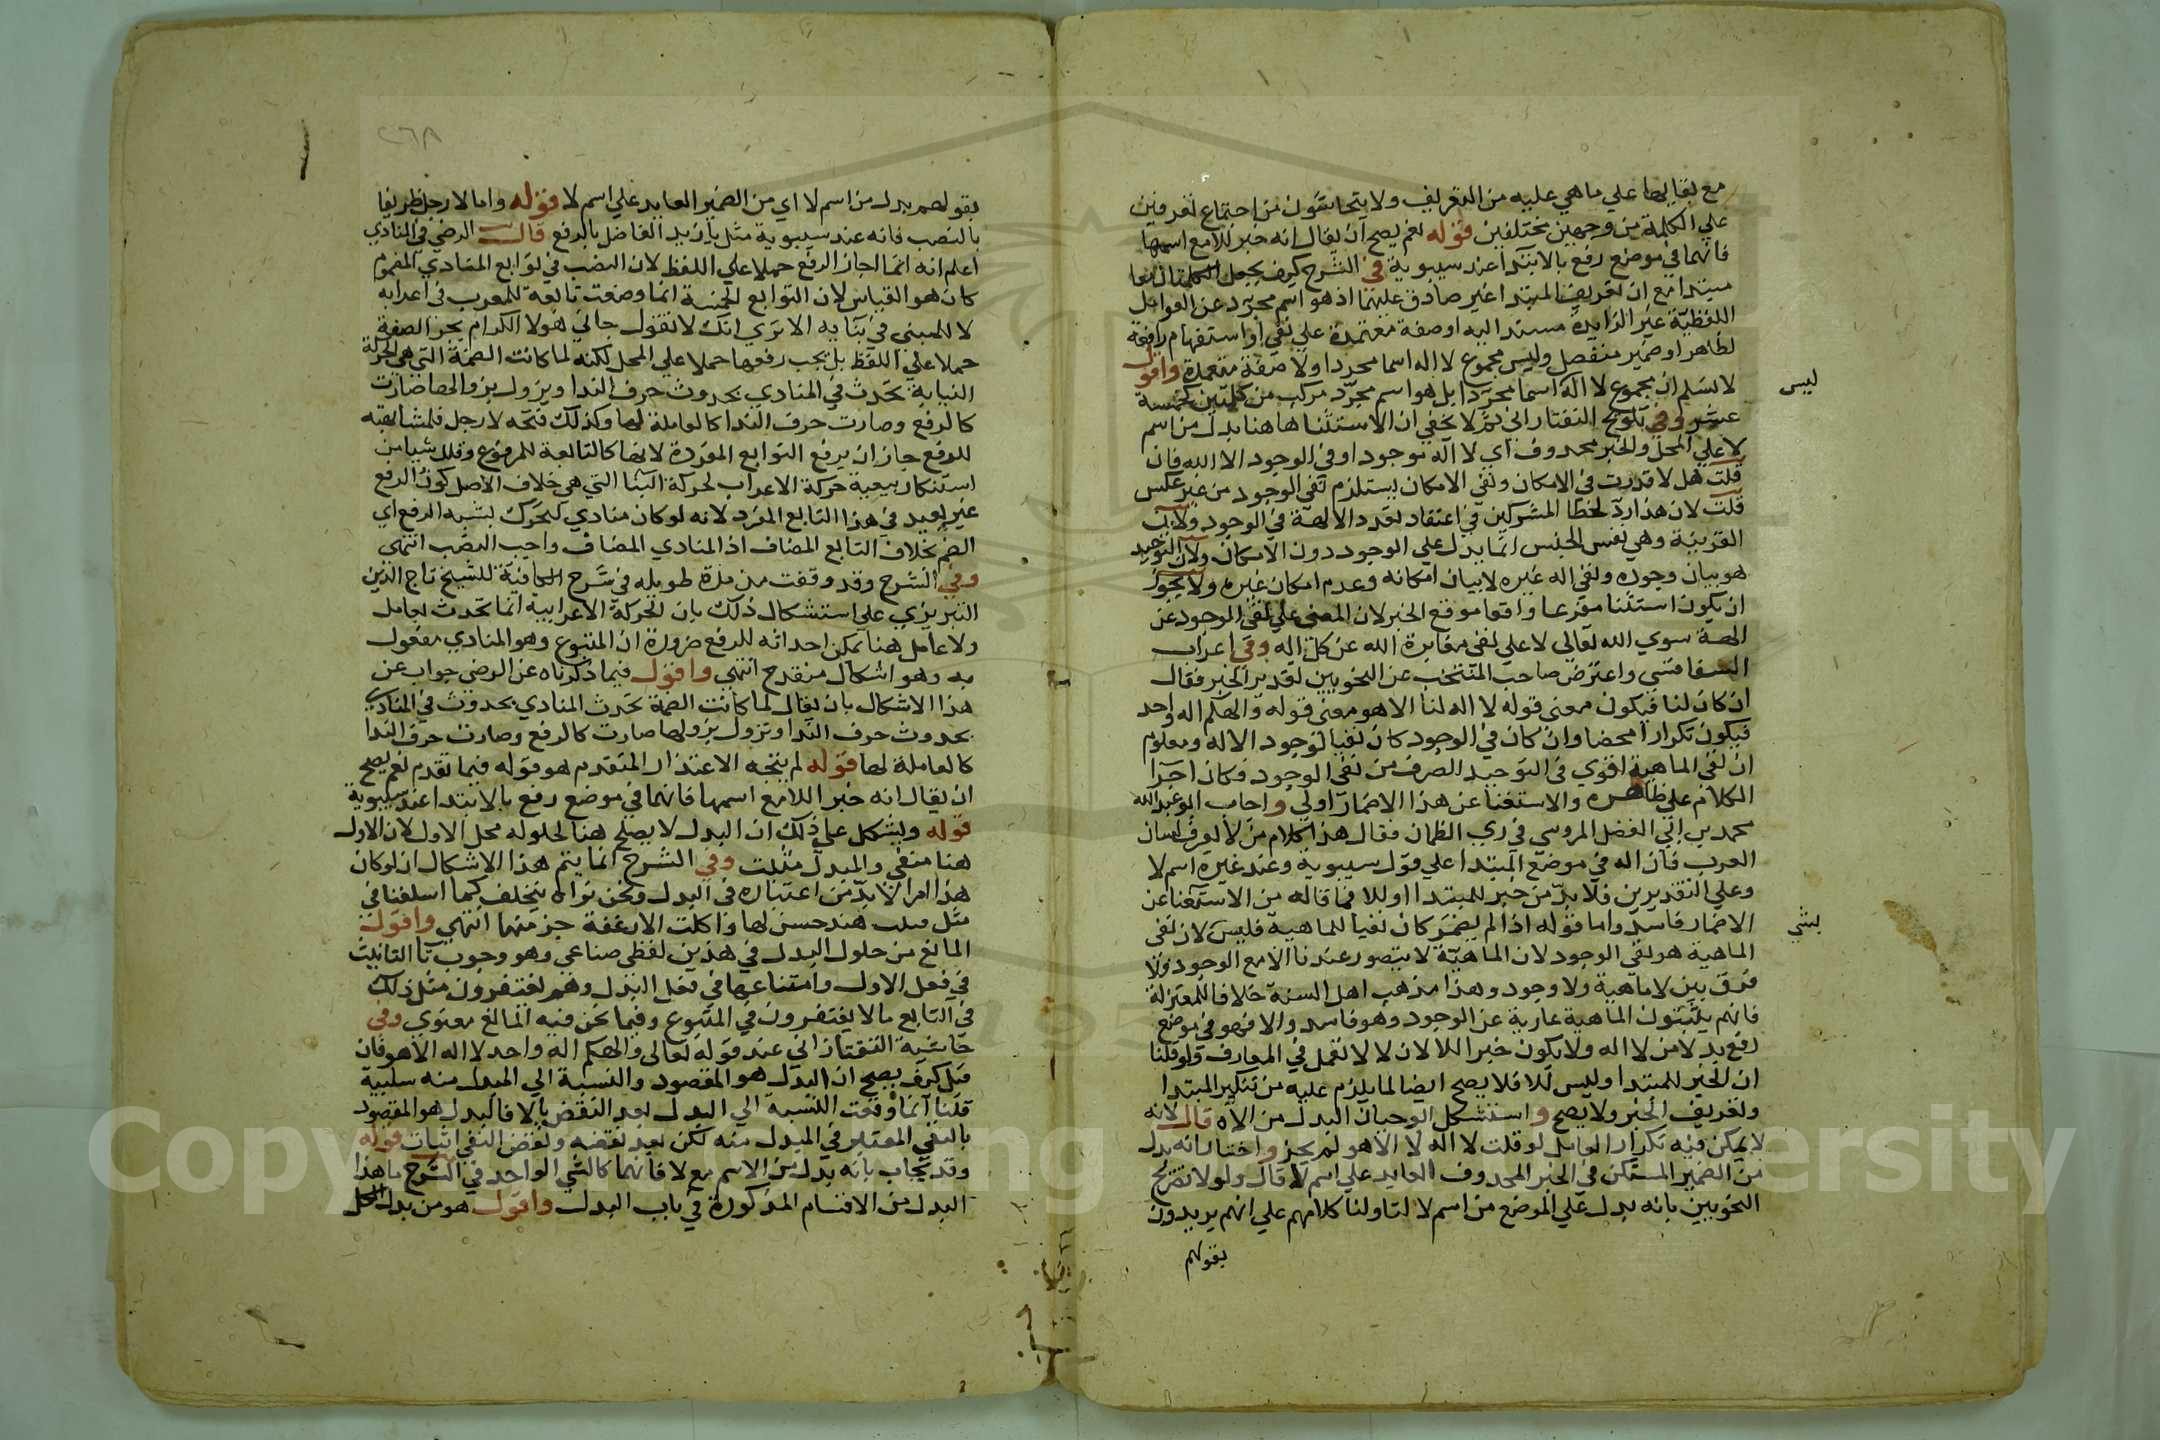 مع بقايها علي ما هي عليه من التعريف ولا يتحاشون من اجتماع تعريفين
علي الكلمة من وجهين مختلفين قوله نعم يصح ان يقال انه خبر للا مع اسمها
فانهما في موضع رفع بالابتدا عند سيبوية في الشرح كيف يجعل الكلمتان معا
مبتدا مع ان تعريف المبتدا غير صادق عليهما اذ هو اسم مجرد عن العوامل
اللفظية غير الزايدة مسندا اليه او صفة معتمدة علي نفي او استفهام رافعة
لظاهر او ضمير منفصل وليس مجموع لا اله اسما مجردا ولا صفة معتمدة واقول
ليس
لا نسلم ان مجموع لا اله اسما مجردا بل هو اسم مجرد مركب من كلمتين كخمسة
عشر وفي تلويح التفتازاني ثم لا يخفي ان الاستثنا ها هنا بدل من اسم
لا علي المحل والخبر محذوف اي لا اله موجود او في الوجود الا الله فان
قلت هل لا قدرت في الامكان ونفي الامكان يستلزم نفي الوجود من غير عكس
قلت لان هذا رد لخطا المشركين في اعتقاد تعدد الالهة في الوجود ولان
القرينة وهي نفس الجنس انما يدل علي الوجود دون الامكان ولان التوحيد
هو بيان وجوده ونفي اله غيره لا بيان امكانه وعدم امكان غيره ولا يجوز
ان يكون استثنا مفرعا واقعا موقع الخبر لان المعني علي نفي الوجود عن
الهة سوي الله تعالي لا علي نفي مغايرة الله عن كل اله وفي اعراب
السفاقسي واعترض صاحب المنتخب عن النحويين تقدير الخبر فقال
ان كان لنا فيكون معني قوله لا اله لنا الا هو معني قوله والهكم اله واحد
فيكون تكرارا محضا وان كان في الوجود كان نفيا لوجود الاله ومعلوم
ان نفي الماهية اقوي في التوحيد الصرف من نفي الوجود فكان اجرا
الكلام علي ظاهره والاستغنا عن هذا الاضمار اولي واجاب ابو عبد الله
محمد بن ابي الفضل المروسي في ري الظمان فقال هذا كلام من لا يعرف لسان
العرب فان اله في موضع المبتدا علي قول سيبوية وعند غيره اسم لا
وعلي التقديرين فلا بد من خبر للمبتدا او للا فما قاله من الاستغنا عن
الاضمار فاسد واما قوله اذا لم يضمر كان نفيا للماهية فليس لان نفي
بشي
الماهية هو نفي الوجود لان الماهية لا تتصور عندنا الا مع الوجود ولا
فرق بين لا ماهية ولا وجود وهذا مذهب اهل السنة خلافا للمعتزلة
فانهم يثبتون الماهية عارية عن الوجود وهو فاسد والا فهو في موضع
رفع بدلا من لا اله ولا يكون خبرا للا لان لا لا تعمل في المعارف ولو قلنا
ان الخبر للمبتدا وليس للا فلا يصح ايضا لما يلزم عليه من تنكير المبتدا
وتعريف الخبر ولا يصح واستشكل ابو حيان البدل من الاه قال لانه
لا يمكن فيه تكرار العامل لو قلت لا اله لا الا هو لم يجز واختار انه بدل
من الضمير المستكن في الخبر المحذوف العايد علي اسم لا قال ولولا تصريح
النحويين بانه بدل علي الموضع من اسم لا لتاولنا كلامهم علي انهم يريدون
بقولهم
٢٦٨
بقولهم بدل من اسم لا اي من الضمير العايد علي اسم لا قوله واما لا رجل ظريفا
بالنصب فانه عند سيبوية مثل يا زيد الفاضل بالرفع قال الرضي في المنادي
اعلم انه انما اجاز الرفع حملا علي اللفظ لان النصب في توابع المنادي المضموم
كان هو القياس لان التوابع الخمسة انما وضعت تابعة للمعرب في اعرابه
لا للمبني في بنايه الا تري انك لا تقول جاني هولا الكرام بجر الصفة
حملا علي اللفظ بل يجب رفعها حملا علي المحل لكنه لما كانت الضمة التي هي الحركة
البنايية تحدث في المنادي بحدوث حرف الندا ويزول بزوالها صارت
كالرفع وصارت حرف الندا كالعاملة لها وكذلك فتحه لا رجل فلمشابهته
للرفع جاز ان يرفع التوابع المفردة لانها كالتابعة للمرفوع وقلل شيا من
استنكار تبعية حركة الاعراب لحركة البنا التي هي خلاف الاصل كون الرفع
غير بعيد في هذا التابع المفرد لانه لو كان منادي لتحرك بشبه الرفع اي
الضم بخلاف التابع المضاف اذ المنادي المضاف واجب النصب انتهي
وفي الشرح وقد وقفت من مدة طويله في شرح الكافية للشيخ تاج الدين
التبريزي علي استشكال ذلك بان الحركة الاعرابية انما تحدث بعامل
ولا عامل هنا يمكن احداثه للرفع ضرورة ان المتبوع وهو المنادي مفعول
به وهو اشكال منقدح انتهي واقول فيما ذكرناه عن الرضي جواب عن
هذا الاشكال بان يقال لما كانت الضمة تحدث المنادي بحدوث في المنادي
بحدوث حرف الندا وتزول بزوالها صارت كالرفع وصارت حرف الندا
كالعاملة لها قوله لم يتجه الاعتذار المتقدم هو قوله فيما تقدم نعم يصح
ان يقال انه خبر اللا مع اسمها فانهما في موضع رفع بالابتدا عند سيبوية
قوله ويشكل علي ذلك ان البدل لا يصلح هنا لحلوله محل الاول لان الاول
هنا منفي والمبدل مثبت وفي الشرح انما يتم هذا الاشكال ان لو كان
هذا امرا لا بد من اعتباره في البدل ونحن نراه يتخلف كما اسلفنا في
مثل هند حسن لها واكلت الارغفة جز منها انتهي واقول
المانع من حلول البدل في هذين لفظي صناعي وهو وجوب تا التانيث
في فعل الاول وامتناعها في فعل البدل وهم يغتفرون مثل ذلك
في التابع ما لا يغتفرون في المتبوع وفيما نحن فيه المانع معنوي وفي
حاشية التفتازاني عند قوله تعالي والهكم اله واحد لا اله الا هو فان
قيل كيف يصح ان البدل هو المقصود والنسبة الي المبدل منه سلبية
قلنا انما وقعت النسبة الي البدل بعد النقض بالا فالبدل هو المقصود
بالنفي المعتبر في المبدل منه لكن بعد نقضه ونقض النفي اثبات قوله
وقد يجاب بانه بدل من الاسم مع لا فانهما كالشي الواحد في الشرح ما هذا
البدل من الاقسام المذكورة في باب البدل واقول هو من بدل الكل